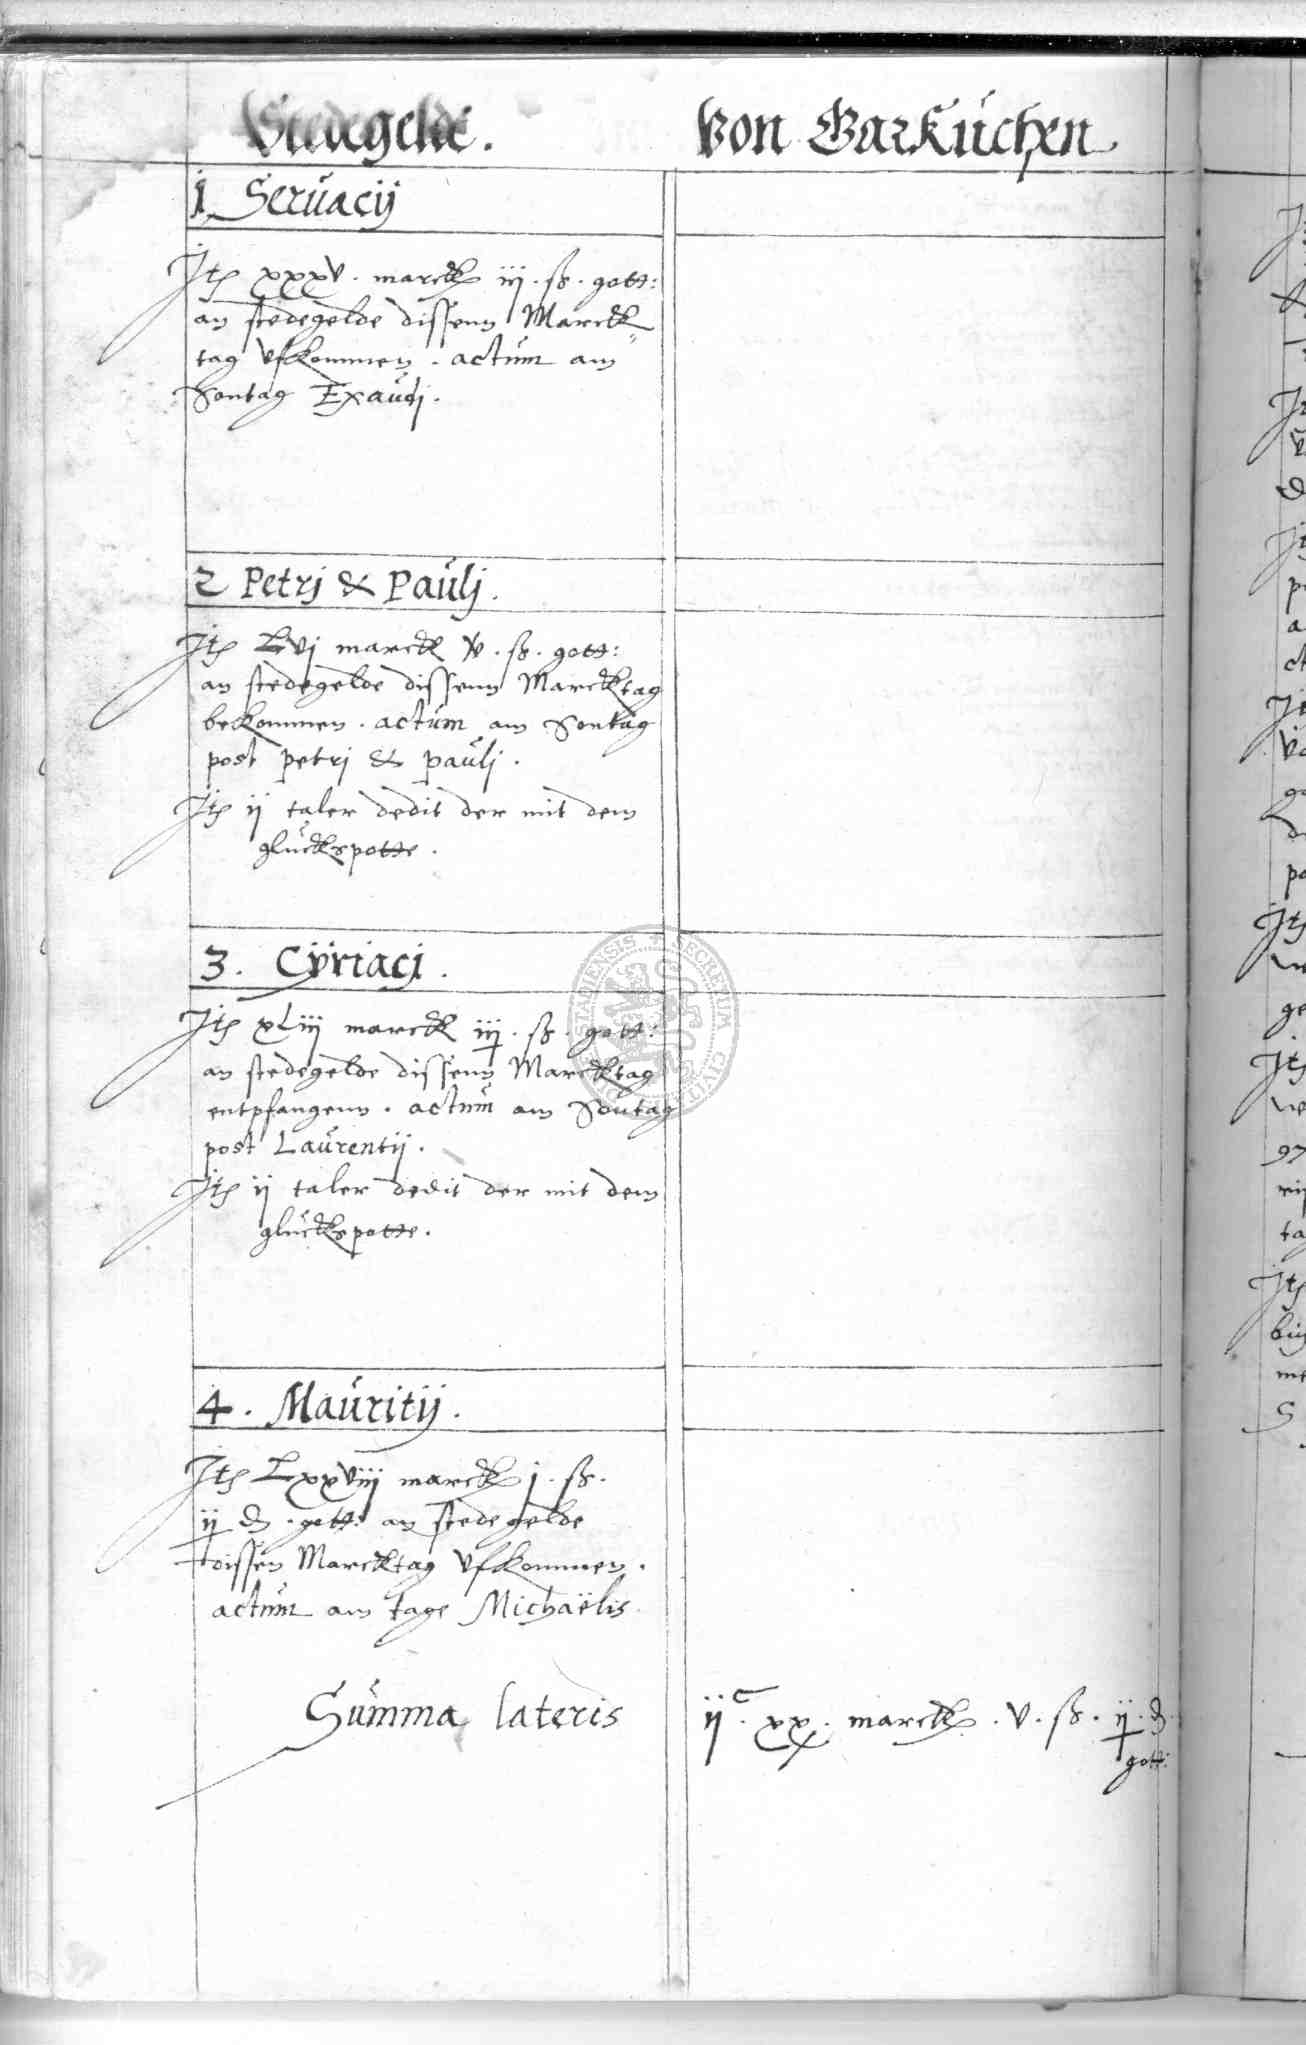 Stedegelde. Von Garkuchen
1 Servacij
Itē xxxv. marck iij. ß. gott:
an stedegelde dissenn Marck=
tag vfkommen. actum am
Sontag Exaudi.
2 Petrj & Paulj.
Itē Lvj marck v. ß. gott:
an stedegelde dissenn Marcktag
bekommen. actum am Sontag
post petrj & paulj.
Itē ij taler dedit der mit dem
gluckspotte.
3. Cÿriacj.
Itē xLiij marck iij. ß. gott:
an stedegelde dissenn Marcktag
entpfangenn. actum am Sontag
post Laurentij.
Itē ij taler dedit der mit dem
gluckspotte.
4. Mauritij.
Itē Lxxviij marck j. ß.
ij ₰. gott: an stedegelde
dissen Marcktag vfkommen.
actum am tage Michaëlis
Summa lateris ij c. xx. marck. v. ß. ij. ₰.
gott: